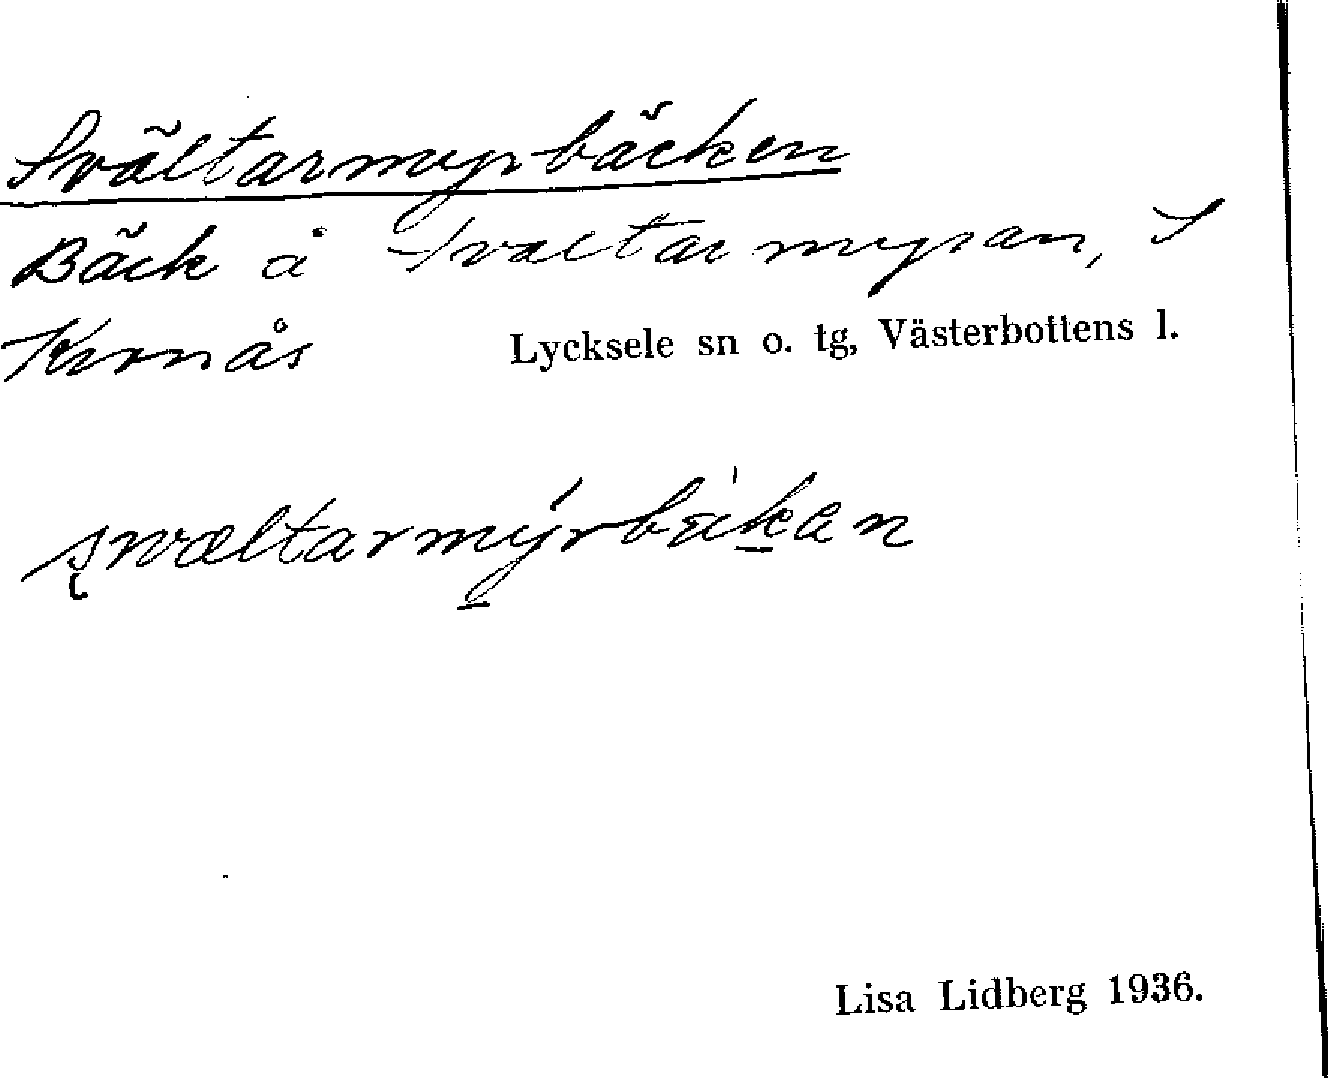 Svältarmyrbäcken
Bäck å Svältarmyran, S
Kvnås Lycksele sn o. tg, Västerbottens l.
svæltarmýrbèkan
Lisa Lidberg 1936.